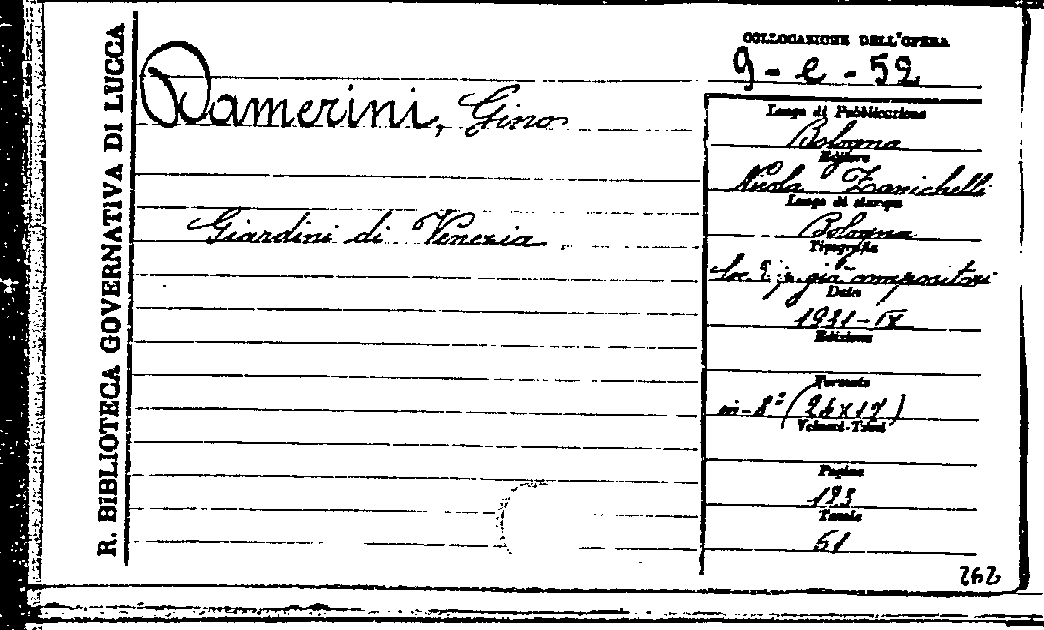 R. BIBLIOTECA GOVERNATIVA DI LUCCA
Damerini, Gino
Giardini di Venezia
COLLOCAZIONE DELL'OPERA
9 - e - 52
Luogo di Pubblicazione
Bologna
Editore
Nicola Zanichelli
Luogo di stampa
Bologna
Tipografia
già compositori
Data
1931-IX
Edizione
Formato
in-8º
Volumi-Tomi
Pagine
Tavole
51
262